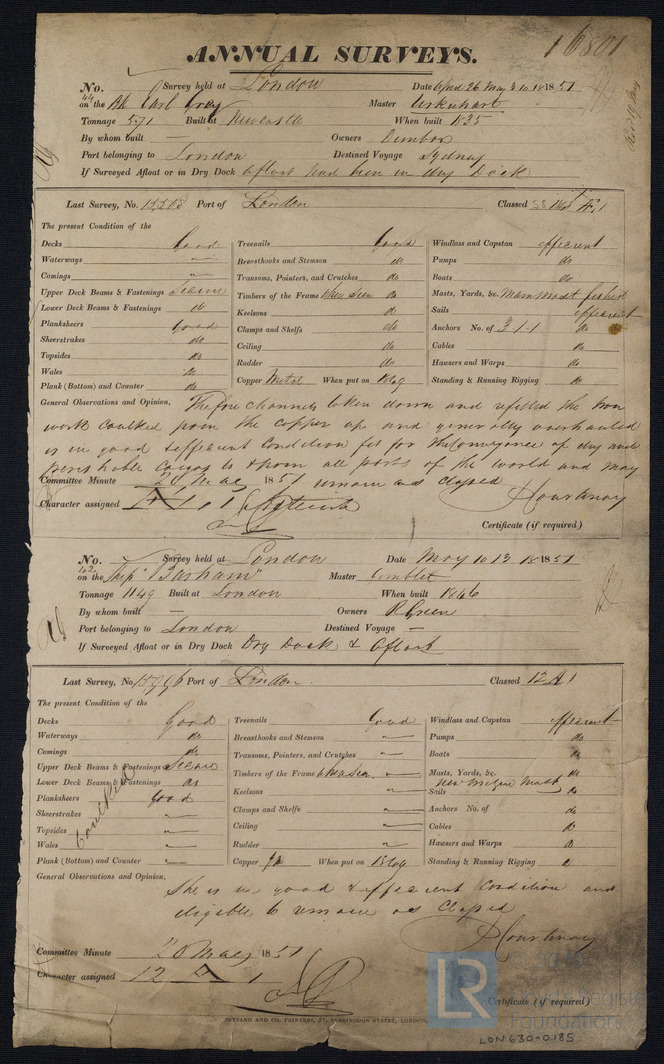 ANNUAL SURVEYS.
No. Survey held at London Date April 26 May 3 10 1851
44
on the Bk Earl Grey Master Urkuhart
Tonnage 571 Built at Newcastle When built 1835
By whom built Owners Dunbar
Port belonging to London Destined Voyage Sydney
If Surveyed Afloat or in Dry Dock afloat had been in dry Dock
Last Survey, No. Port of London Classed
The present Condition of the
Decks Good Treenails Good Windlass and Capstan efficient
Waterways Breasthooks and Stemson do Pumps do
Comings Transoms, Pointers, and Crutches do Boats do
Upper Deck Beams & Fastenings Secure Timbers of the Frame when seen do Masts, Yards, &c. Main mast fished
Lower Deck Beams & Fastenings do Keelsons do Sails efficient
Planksheers Good Clamps and Shelfs do Anchors No. of 3 1.1 do
Sheerstrakes do Ceiling do Cables do
Topsides do Rudder do Hausers and Warps do
Wales do Copper Metal When put on Standing & Running Rigging do
Plank (Bottom) and Counter do
General Observations and Opinion, The fore channels taken down and refitted the Iron
work caulked from the copper up and generally overhauled
is in good & efficient condition fit for the conveyance of dry and
perishable cargos to & from all parts of the world and may
Committee Minute 20 May 1851 remain as classed
Character assigned
Certificate (if required)
No. Survey held at London Date May 10 13 1851
42
on the Ship "Barham" Master Gimblet
Tonnage 1149 Built at London When built 1846
By whom built — Owners R Green
Port belonging to London Destined Voyage —
If Surveyed Afloat or in Dry Dock Dry Dock & Afloat
Last Survey, No. Port of London Classed 12 A 1
The present Condition of the
Decks Good Treenails Good Windlass and Capstan efficient
Waterways do Breasthooks and Stemson Pumps do
Comings do Transoms, Pointers, and Crutches Boats do
Upper Deck Beams & Fastenings Secure Timbers of the Frame when seen Masts, Yards, &c. do
Lower Deck Beams & Fastenings do Keelsons Sails
Planksheers Good Clamps and Shelfs Anchors No. of do
Sheerstrakes Ceiling Cables do
Topsides Rudder Hausers and Warps do
Wales Copper When put on Standing & Running Rigging do
Plank (Bottom) and Counter
Caulked
General Observations and Opinion,
She is in good & efficient condition and
eligible to remain as Classed
Committee Minute 20 May 1851
Character assigned 12 A 1
Certificate (if required)
LR
Lloyd's Register
Foundation
LON630-0185